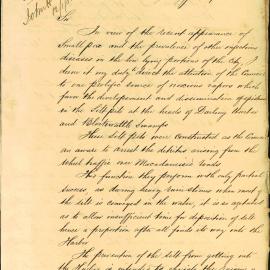 Sir
In view of the recent appearance of
Small pox and the prevalence of other infectious
diseases in the low lying portions of the City, I
deem it my duty to direct the attention of the Council
to one prolific source of noxious vapors which
form the development and dissemination of
in the Silt pits at the heads of Darling Harbor
and Blackwattle Swamp
These Silt pits were constructed as the Council
are aware to arrest the detritus arising from the
wheel traffic over Macadamised roads
This function they perform with only partial
success as during heavy rain storms when most of
the silt is conveyed in the water, it is so agitated
as to allow insufficient time for deposition of silt
hence a proportion after all finds its way into the
Harbor
The prevention of the silt from getting into
the Harbor is